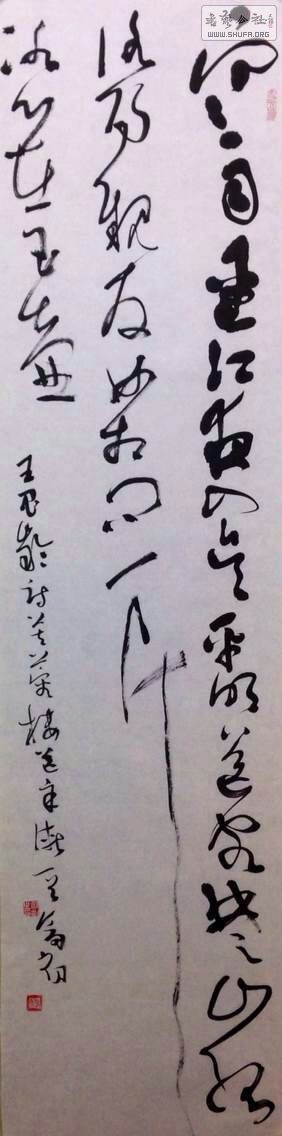 書藝公社
WWW.SHUFA.ORG
寒雨連江夜入吳平明送客楚山孤
洛陽親友如相問一片
冰心在玉壺
王昌齡詩芙蓉樓送辛漸